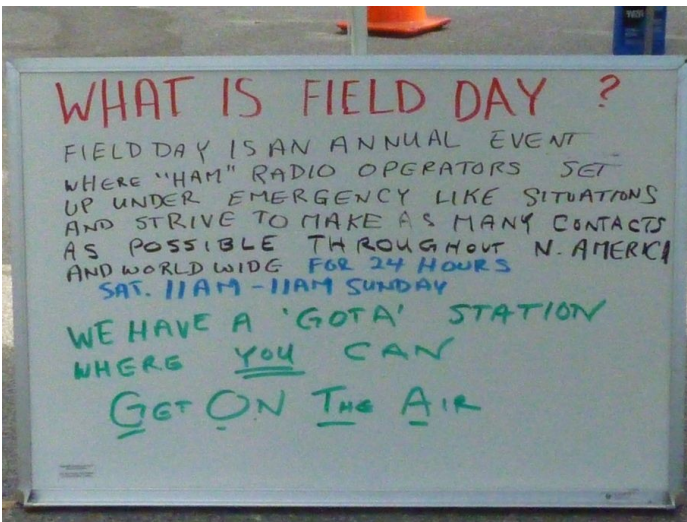 WHAT IS FIELD DAY ?
FIELD DAY IS AN ANNUAL EVENT
WHERE "HAM" RADIO OPERATORS SET
UP UNDER EMERGENCY LIKE SITUATIONS
AND STRIVE TO MAKE AS MANY CONTACTS
AS POSSIBLE THROUGHOUT N. AMERICA
AND WORLD WIDE FOR 24 HOURS
SAT. 11AM - 11AM SUNDAY
WE HAVE A 'GOTA' STATION
WHERE YOU CAN
GET ON THE AIR